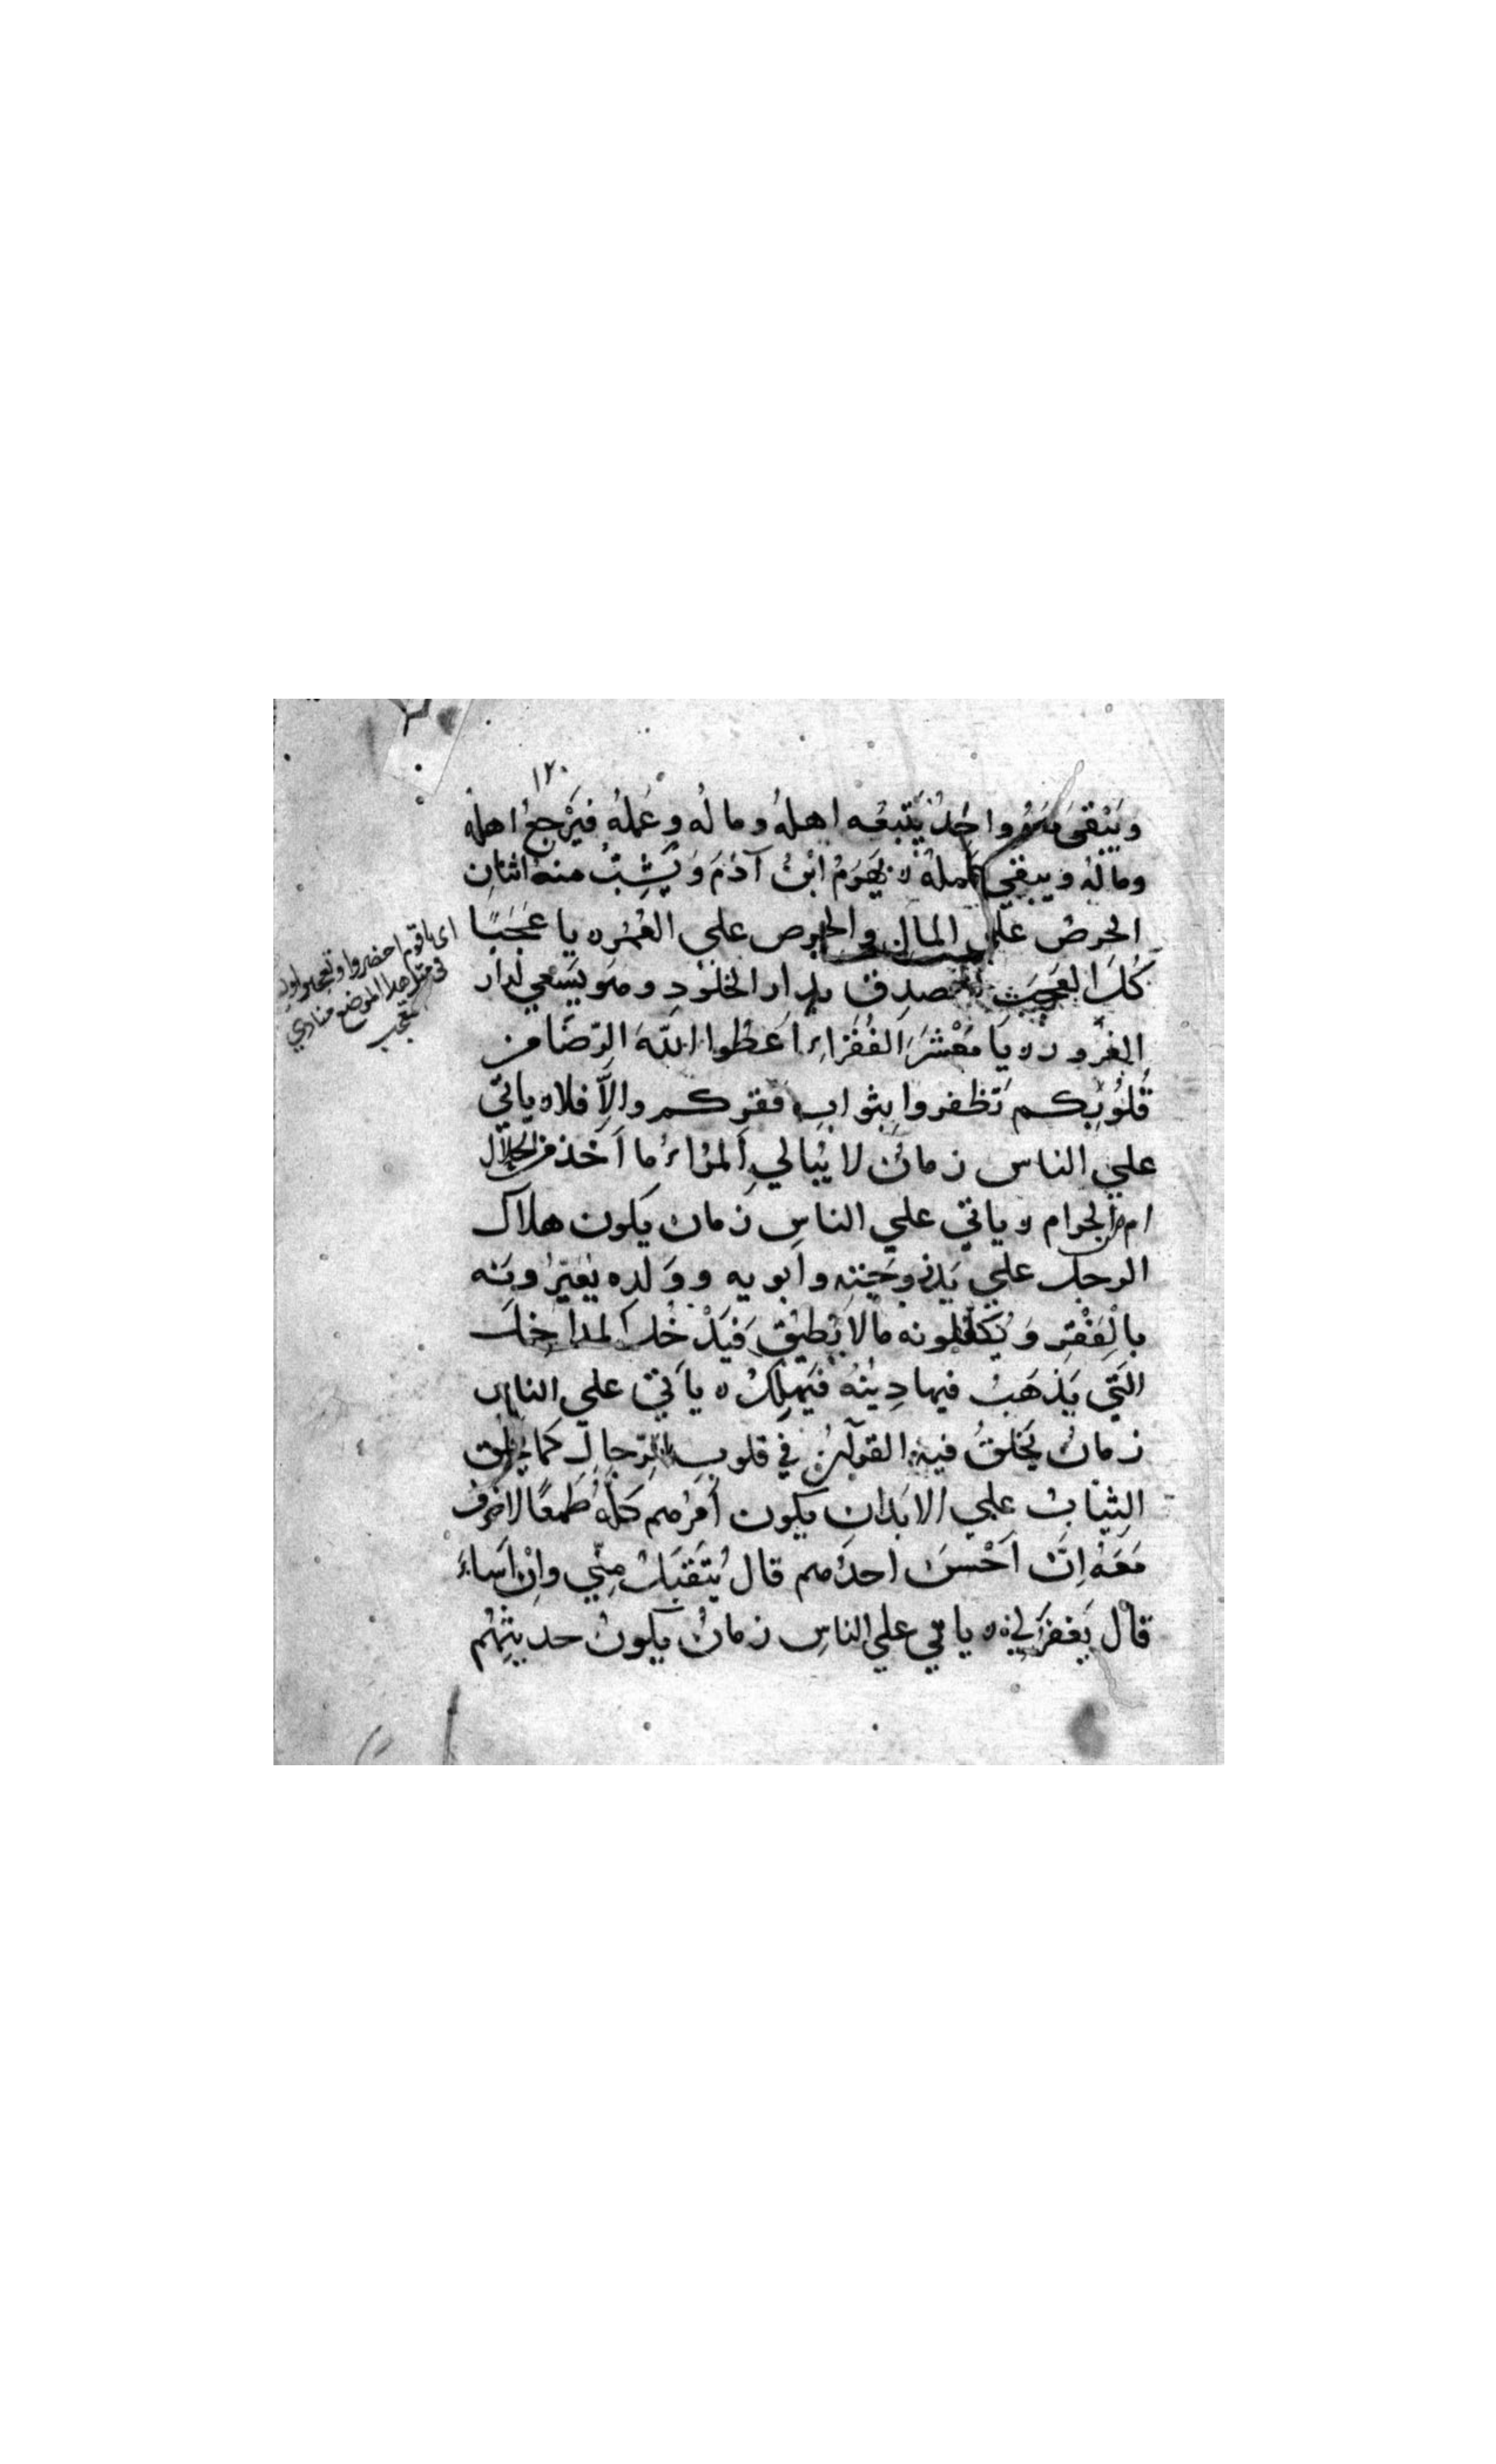 ١٢٠
وَيَبْقىَ معه واحِدٌ يَتبعُه اهلهُ وما لُه وعَملهُ فيَرْجعُ اهلهُ
ومالهُ ويبقي عملهُ ه يَهرَمُ ابْنُ آدَمَ وَيَشِبُّ منهُ اثنانِ
الحرصُ علي المالِ والحرص علي العُمُره يا عَجَبًا
كُلَّ العَجَبِ للمصدِق بدار الخلوُدِ وهو يَسْعي لدار
الغرُوره يَا مَعْشَرَ الفُقرَاءِ اَعطُوا اللهَ الرّضَا من
قُلُوبِكم تَظفروا بثوابِ فقرِكم والاَّ فلاه ياتي
علي الناس زمانٌ لا يُبالي المرْاءُ ما اَخذ من الحلال
ام من الحرام ه ياتي علي الناسِ زمان يكون هلاك
الرجل علي يَد زوجَتِه وابويه ووَلده يُعَيّرُونَه
بالفَقْرِ وَيُكلفونه مالا يُطيق فَيَدْخُل المداخِلَ
التّي يَذهَبُ فيها دِينُهُ فيَهلِكُ ه يأتي علي الناس
زمانٌ يَخلقُ فيه القرآنُ في قلوبِ الرّجالِ كما يخلق
الثِيابُ علي الابَدانِ يكون اَمرُهم كلّهُ طَمعًا لا خوف
مَعَهُ اِنْ اَحْسَنَ احدُهم قال يُتَقبَّلُ مِنّي واِنْ اَساءَ
قال يَغفرُ لي ه ياتي علي الناسِ زمانٌ يكونُ حديثهُم
اي ياقوم احضروا وتعجبوا
في مثل هذا الموضع منادي
تعجب